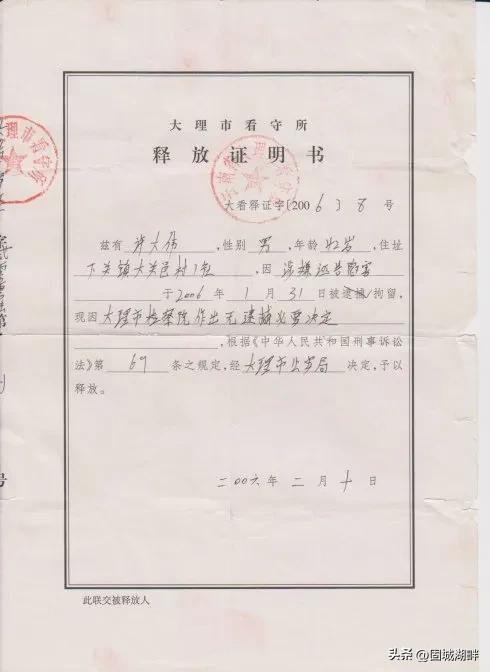 大理市看守所
释放证明书
大看释证字[2006]8号
兹有 许大伟,性别 男,年龄 42岁,住址
下关镇大关邑村1组,因 涉嫌诬告陷害
于2006年1月31日被逮捕/拘留,
现因大理市检察院作出无逮捕必要决定
,根据《中华人民共和国刑事诉讼
法》第 69 条之规定,经 大理市公安局 决定,予以
释放。
二〇〇六年 二 月 十 日
此联交被释放人
号
头条 @固城湖畔